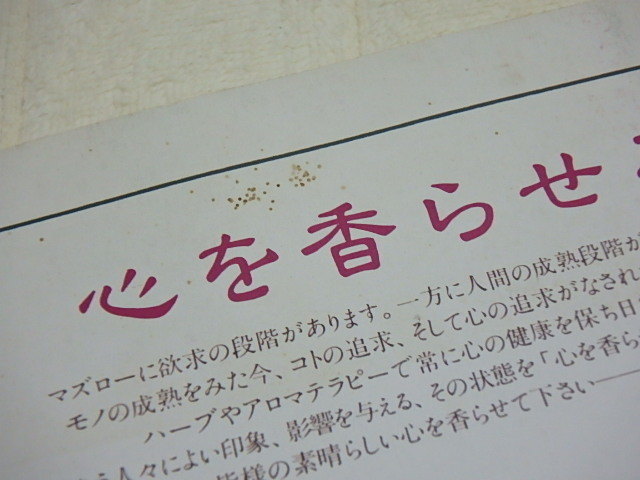 心を香らせ
マズローに欲求の段階があります。一方に人間の成熟段階が
モノの成熟をみた今、コトの追求、そして心の追求がなされ
ハーブやアロマテラピーで常に心の健康を保ち日
う人々によい印象、影響を与える、その状態を「心を香ら
皆様の素晴らしい心を香らせて下さい——